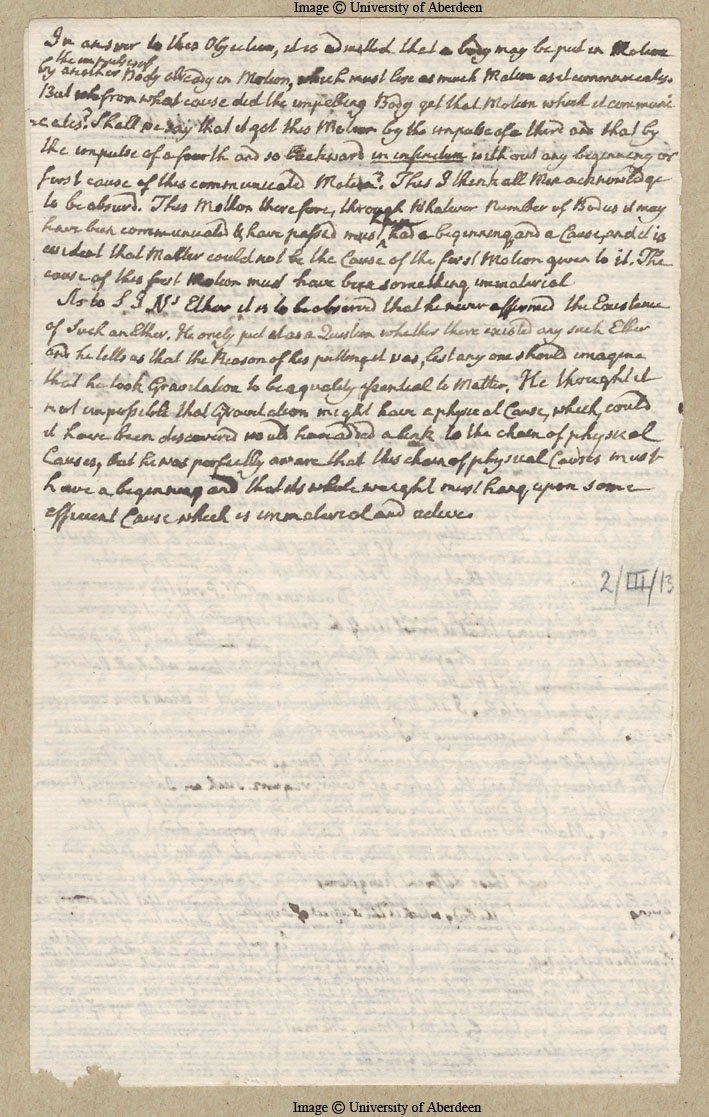 Image © University of Aberdeen
In answer to this Objection, it is admitted that a body may be put in Motion
the impulse of
by another Body already in Motion, which must lose as much Motion as it communicates.
But from what cause did the impelling Body get that Motion which it communi
-cates? Shall we say that it got this Motion by the impulse of a third and that by
the impulse of a fourth and so backward in infinitum without any beginning or
first cause of this communicated Motion? This I think all Men acknowledge
to be absurd. This Motion therefore, through whatever number of Bodies it may
have been communicated & have passed must had a beginning, and a Cause, and it is
evident that Matter could not be the Cause of the first Motion given to it. The
cause of this first Motion must have been something immaterial
As to S I Ns Ether it is to be observed that he never affirmed the Existence
of Such an Ether. He onely put it as a Question whether there existed any such Ether
and he tells us that the Reason of his putting it was, lest any one should imagine
that he took Gravitation to be a quality essential to Matter. He thought it
not impossible that Gravitation might have a physical Cause, which, could
it have been discovered would have added a link to the chain of physical
Causes, but he was perfectly aware that this chain of physical Causes must
have a beginning and that its whole weight must hang upon some
efficient Cause which is immaterial and active.
2/III/13
Image © University of Aberdeen